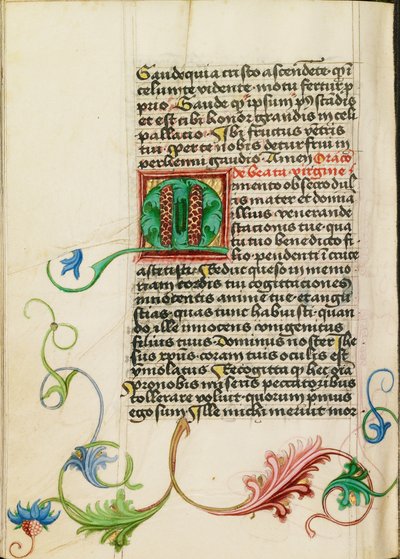 Gaude quia cristo ascendente qui in
celum te vidente motu fertur p
prio Gaude que ipsum post scandis
et est tibi honor grandis in celi
pallacio Ubi fructus ventris
tui per te nobis detur frui in
perhenni gaudio Amen Oracio
de beata virgine
Memento obsecro dul
cis mater et domina
illius venerande
stacionis tue qua
tu tuo benedicto fi
lio pendenti i cruce
astetisti Reduc queso in memo
riam cordis tui cogitaciones
innocentis anime tue et angu
stias quas tunc habuisti quan
do ille innocens unigenitus
filius tuus dominus noster Ihe
sus xpus coram tuis oculis est
ymolatus Recogita que hec omnia
Pro nobis miseris peccatoribus
tollerare voluit quorum primus
ego sum Ille michi meruit mor